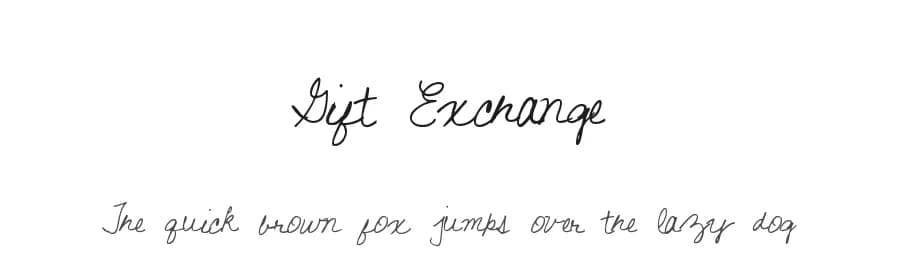 Gift Exchange
The quick brown fox jumps over the lazy dog